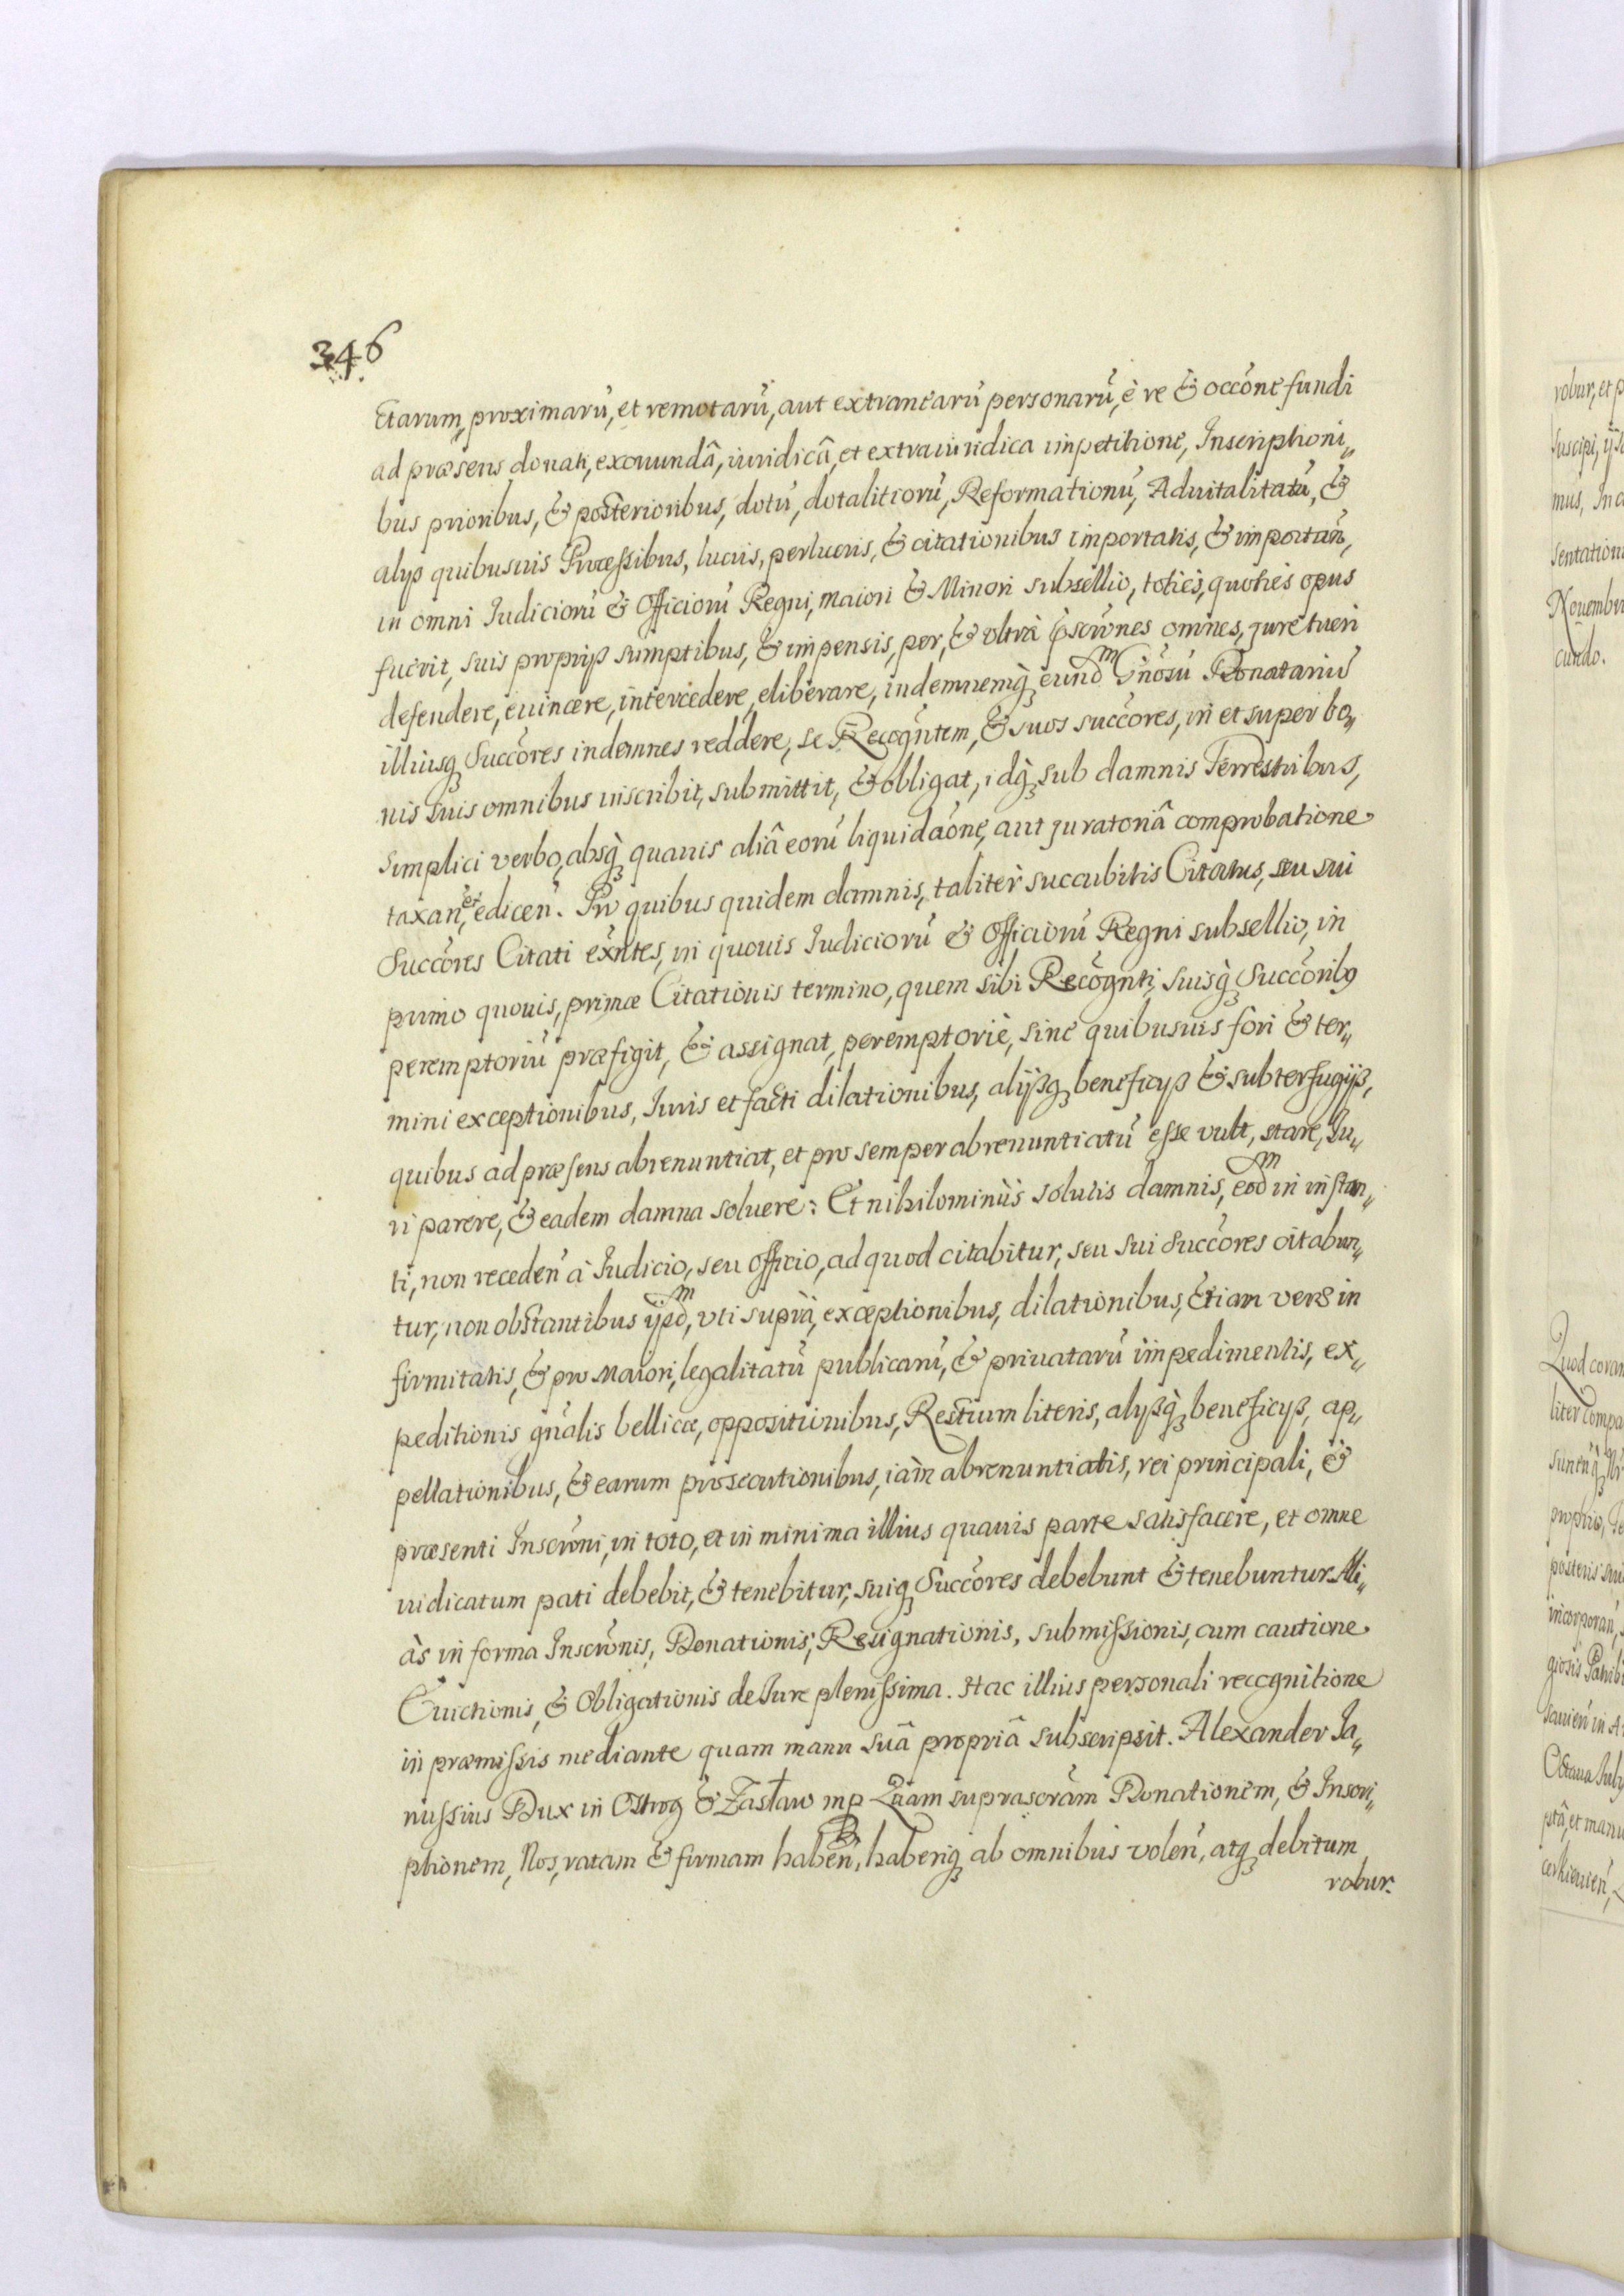 346
ctarum, proximarū, et remotarū, aut extranearū personarū, è re & occõne fundi
ad præsens donati, exoriundâ, iuridicâ, et extraiuridica impetitione, Inscriptioni„
bus prioribus, & posterioribus, dotū, dotalitiorū, Reformationū, Aduitalitatū, &
alijs quibusuis Processibus, lucris, perlucris, & citationibus importatis, & importan̄,
in omni Iudiciorū & Officiorū Regni, maiori & Minori subsellio, toties, quoties opus
fuerit, suis proprijß sumptibus, & impensis, per, & vltrà p̄scrōnes omnes, jure tueri
defendere, euincere, intercedere, eliberare, indemnemq̀ꝫ eundᵐ Gn̄osū Donatariū
illiusqꝫ Succōres indemnes reddere, se Recogn̄tem, & suos succōres, in et super bo„
nis suis omnibus inscribit, submittit, & obligat, idq̀ꝫ sub damnis Terrestribus,
simplici verbo, absq̀ꝫ quauis aliâ eorū liquidaōne, aut juratoriâ comprobatione
taxan̄, et edicen̄. Pro quibus quidem damnis, taliter succubitis Citatus, seu sui
Succōres Citati exn̄tes, in quouis Iudiciorū & Officiorū Regni subsellio, in
primo quouis, primæ Citationis termino, quem sibi Recōgnti, suisq̀ꝫ Succōribꝫ
peremptoriū præfigit, & assignat, peremptoriè, sine quibusuis fori & ter„
mini exceptionibus, Iuris et facti dilationibus, alijßqꝫ beneficijß & subterfugijß,
quibus ad præsens abrenuntiat, et pro semper abrenuntiatū esse vult, stare, Iu„
ri parere, & eadem damna soluere: Et nihilominùs solutis damnis, eodᵐ in instan„
ti, non receden̄ à Iudicio, seu Officio, ad quod citabitur, seu sui Succōres citabun„
tur, non obstantibus ijsdᵐ, vti suprà, exceptionibus, dilationibus, Etiam veris in
firmitatis, & pro Maiori, legalitatū publicarū, & priuatarū impedimentis, ex„
peditionis gn̄alis bellicæ, oppositionibus, Regum literis, alijßq̀ꝫ beneficijß, ap„
pellationibus, & earum prosecutionibus, iàm abrenuntiatis, rei principali, &
præsenti Inscrōni, in toto, et in minima illius quauis parte satisfacere, et omne
iudicatum pati debebit, & tenebitur, suiqꝫ Succōres debebunt & tenebuntur Ali„
às in forma Inscrōnis, Donationis, Resignationis, submissionis, cum cautione
Euictionis, & Obligationis de Iure plenissima. Hac illius personali recognitione
in præmissis mediante quam manu suâ propriâ subscripsit. Alexander Ja„
nussius Dux in Ostrog & Zasław mp Quam suprascrām Donationem, & Inscri„
ptionem, Nos, ratam & firmam haben̄, haberiqꝫ ab omnibus volen̄, atqꝫ debitum
robur.